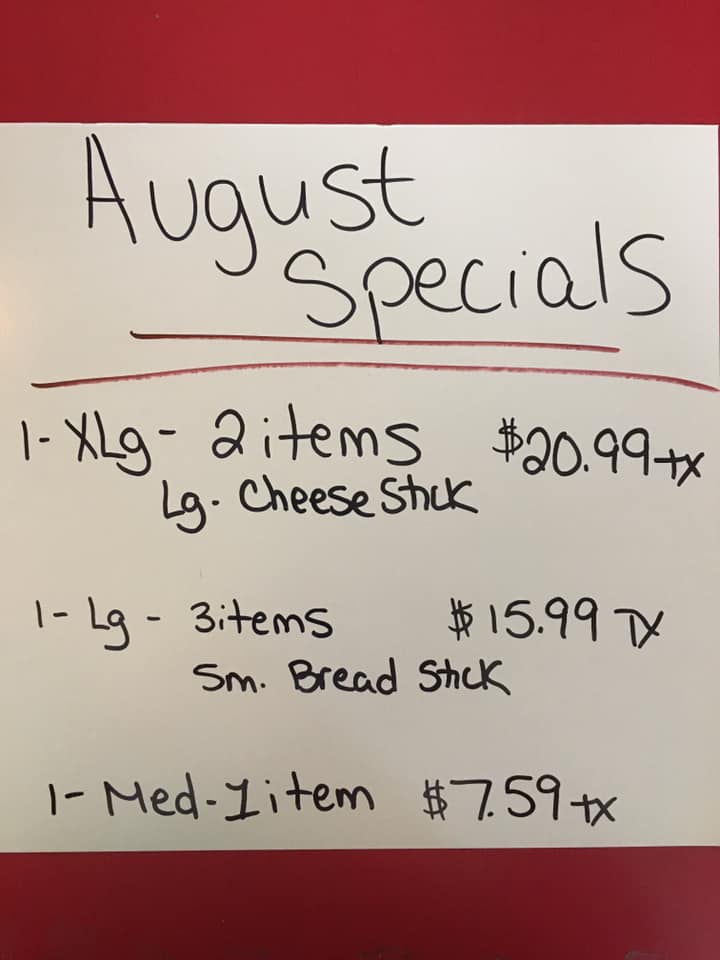 August
Specials
1- XLg- 2 items $20.99+x
Lg. Cheese Stick
1- Lg - 3items $15.99 TX
Sm. Bread Stick
1- Med-1item $7.59+x